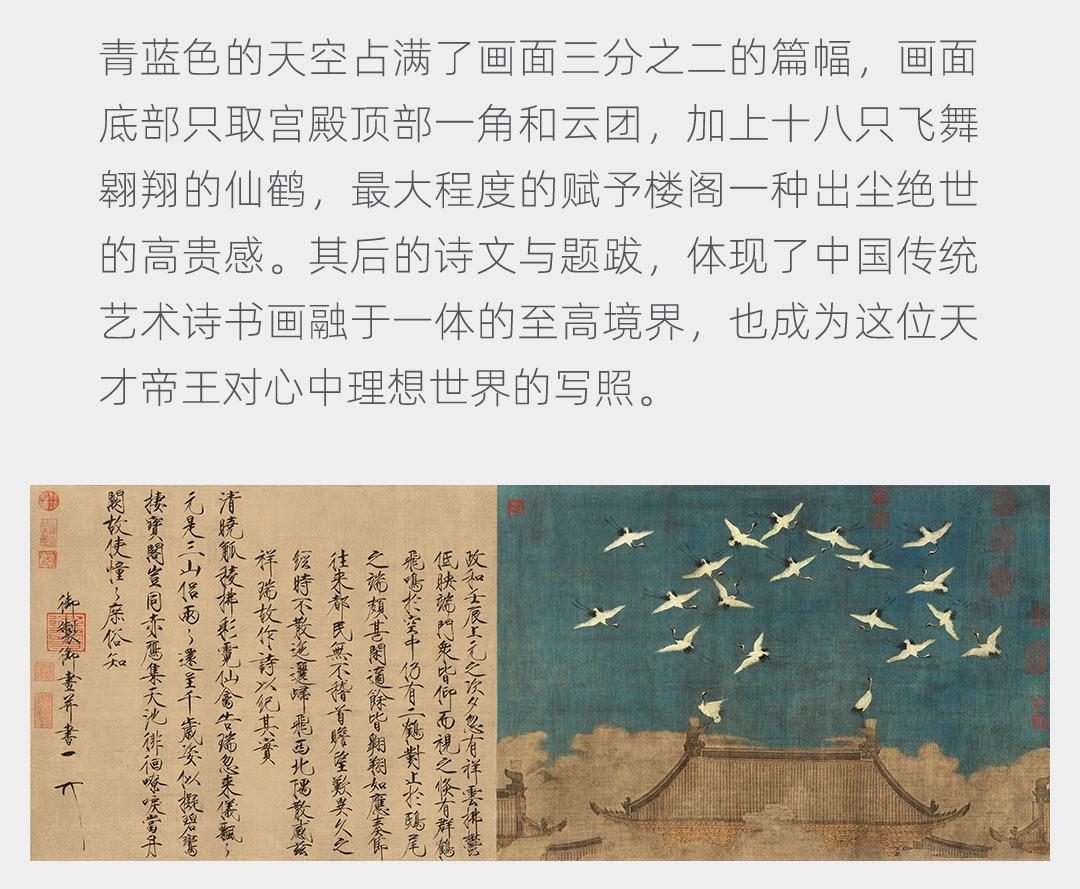 青蓝色的天空占满了画面三分之二的篇幅，画面
底部只取宫殿顶部一角和云团，加上十八只飞舞
翱翔的仙鹤，最大程度的赋予楼阁一种出尘绝世
的高贵感。其后的诗文与题跋，体现了中国传统
艺术诗书画融于一体的至高境界，也成为这位天
才帝王对心中理想世界的写照。
政和壬辰上元之次夕忽有祥雲拂鬱
低映端門衆皆仰而視之倏有群鶴
飛鳴於空中仍有二鶴對止於鴟尾
之端頗甚閑適餘皆翱翔如應奏節
往來都民無不稽首瞻望歎異久之
經時不散迤邐歸飛西北隅散感茲
祥瑞故作詩以紀其實
清曉觚稜拂彩霓仙禽告瑞忽來儀飄々
元是三山侶兩々還呈千歲姿似擬碧鸞
棲寶閣豈同赤鴈集天池徘徊嘹唳當丹
闕故使憧々庶俗知
御製御畫并書